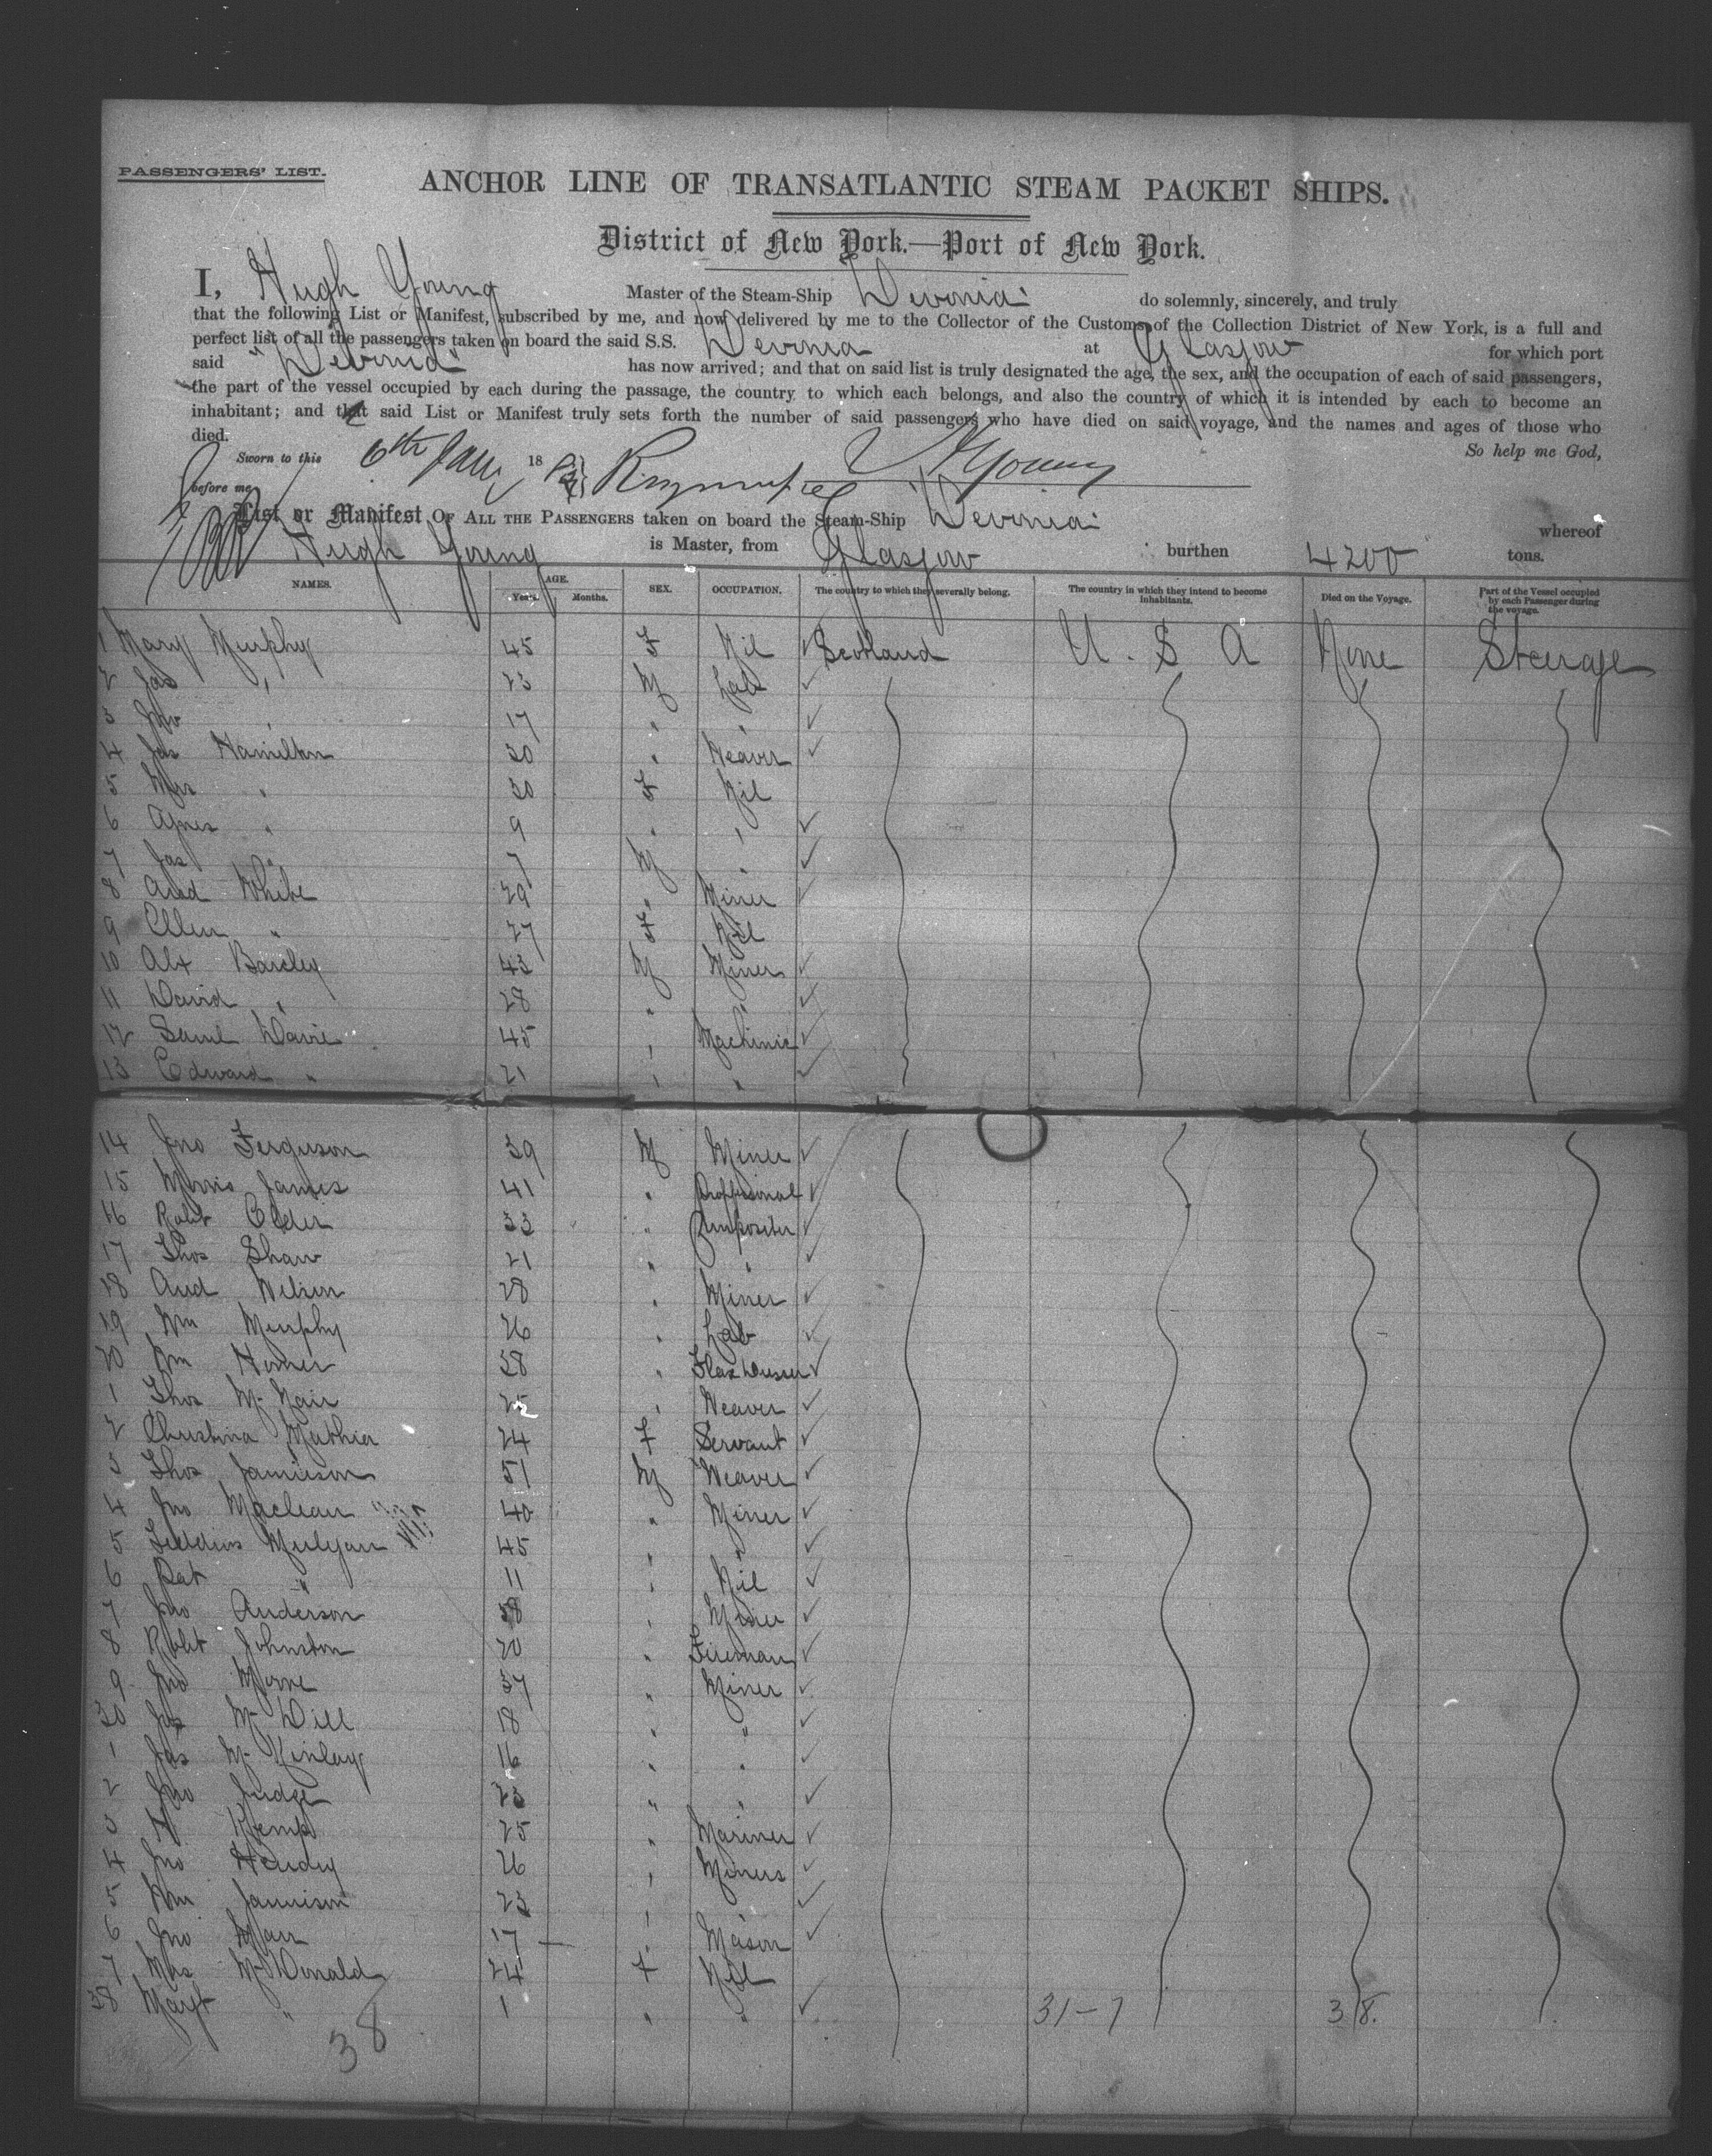 PASSENGERS' LIST.
ANCHOR LINE OF TRANSATLANTIC STEAM PACKET SHIPS.
District of New York.—Port of New York.
I, Hugh Young Master of the Steam-Ship Devonia do solemnly, sincerely, and truly
that the following List or Manifest, subscribed by me, and now delivered by me to the Collector of the Customs of the Collection District of New York, is a full and
perfect list of all the passengers taken on board the said S.S. Devonia at Glasgow for which port
said "Devonia" has now arrived; and that on said list is truly designated the age, the sex, and the occupation of each of said passengers,
the part of the vessel occupied by each during the passage, the country to which each belongs, and also the country of which it is intended by each to become an
inhabitant; and that said List or Manifest truly sets forth the number of said passengers who have died on said voyage, and the names and ages of those who
died. So help me God,
Sworn to this 6th Jany 18 H Young
before me
List or Manifest OF ALL THE PASSENGERS taken on board the Steam-Ship Devonia whereof
Hugh Young is Master, from Glasgow burthen 4200 tons.
NAMES. AGE. Years. Months. SEX. OCCUPATION. The country to which they severally belong. The country in which they intend to become inhabitants. Died on the Voyage. Part of the Vessel occupied by each Passenger during the voyage.
1 Mary Murphy 45 F Nil Scotland U. S A None Steerage
2 Jas " 23 M Lab
3 Jno " 17 " "
4 Jas Hamilton 30 " Weaver
5 Mrs " 30 F Nil
6 Agnes " 9 " "
7 Jas " 7 M "
8 And White 29 " Miner
9 Ellen " 27 F Nil
10 Alx Barcley 43 M Miner
11 David " 28 " "
12 Saml Davie 45 " Machinic
13 Edward " 21 " "
14 Jno Ferguson 39 M Miner
15 Morris James 41 " Proffesional
16 Robt Elder 33 " Compositer
17 Thos Shaw 21 " "
18 And Wilson 28 " Miner
19 Wm Murphy 26 " Lab
20 Wm Homer 38 " Flax Dresser
1 Thos McNair 25 " Weaver
2 Christina Mathier 24 F Servant
3 Thos Jamieson 51 M Weaver
4 Jno Maclean 40 " Miner
5 Mulgan 45 " "
6 Pat " 11 " Nil
7 Jno Anderson 38 " Miner
8 Robt Johnston 20 " Fireman
9 Jno Morne 37 " Miner
30 Jas McDill 18 " "
1 Jas McKinlay 16 " "
2 Jno Judge 23 " "
3 Kemp 25 " Mariner
4 Jno Hendry 26 " Miners
5 Wm Jamieson 23 "
6 Jno Marr 17 " Mason
7 Mrs McDonald 24 F Nil
38 Margt " 1 " " 31-7 38.
38